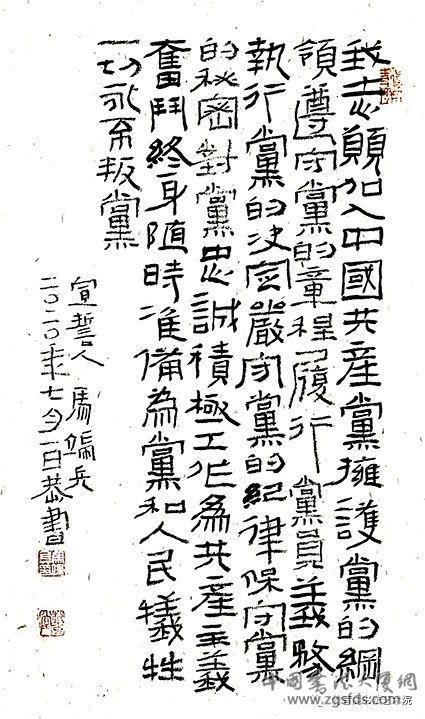 我志願加入中國共産黨擁護黨的綱
領遵守黨的章程履行黨員義務
執行黨的決定嚴守黨的紀律保守黨
的秘密對黨忠誠積極工作為共産主義
奮鬥終身隨時准備為黨和人民犧牲
一切永不叛黨
宣誓人馬端兵
二〇二〇年七月一日恭書
中国书法大厦网
www.zgsfds.com